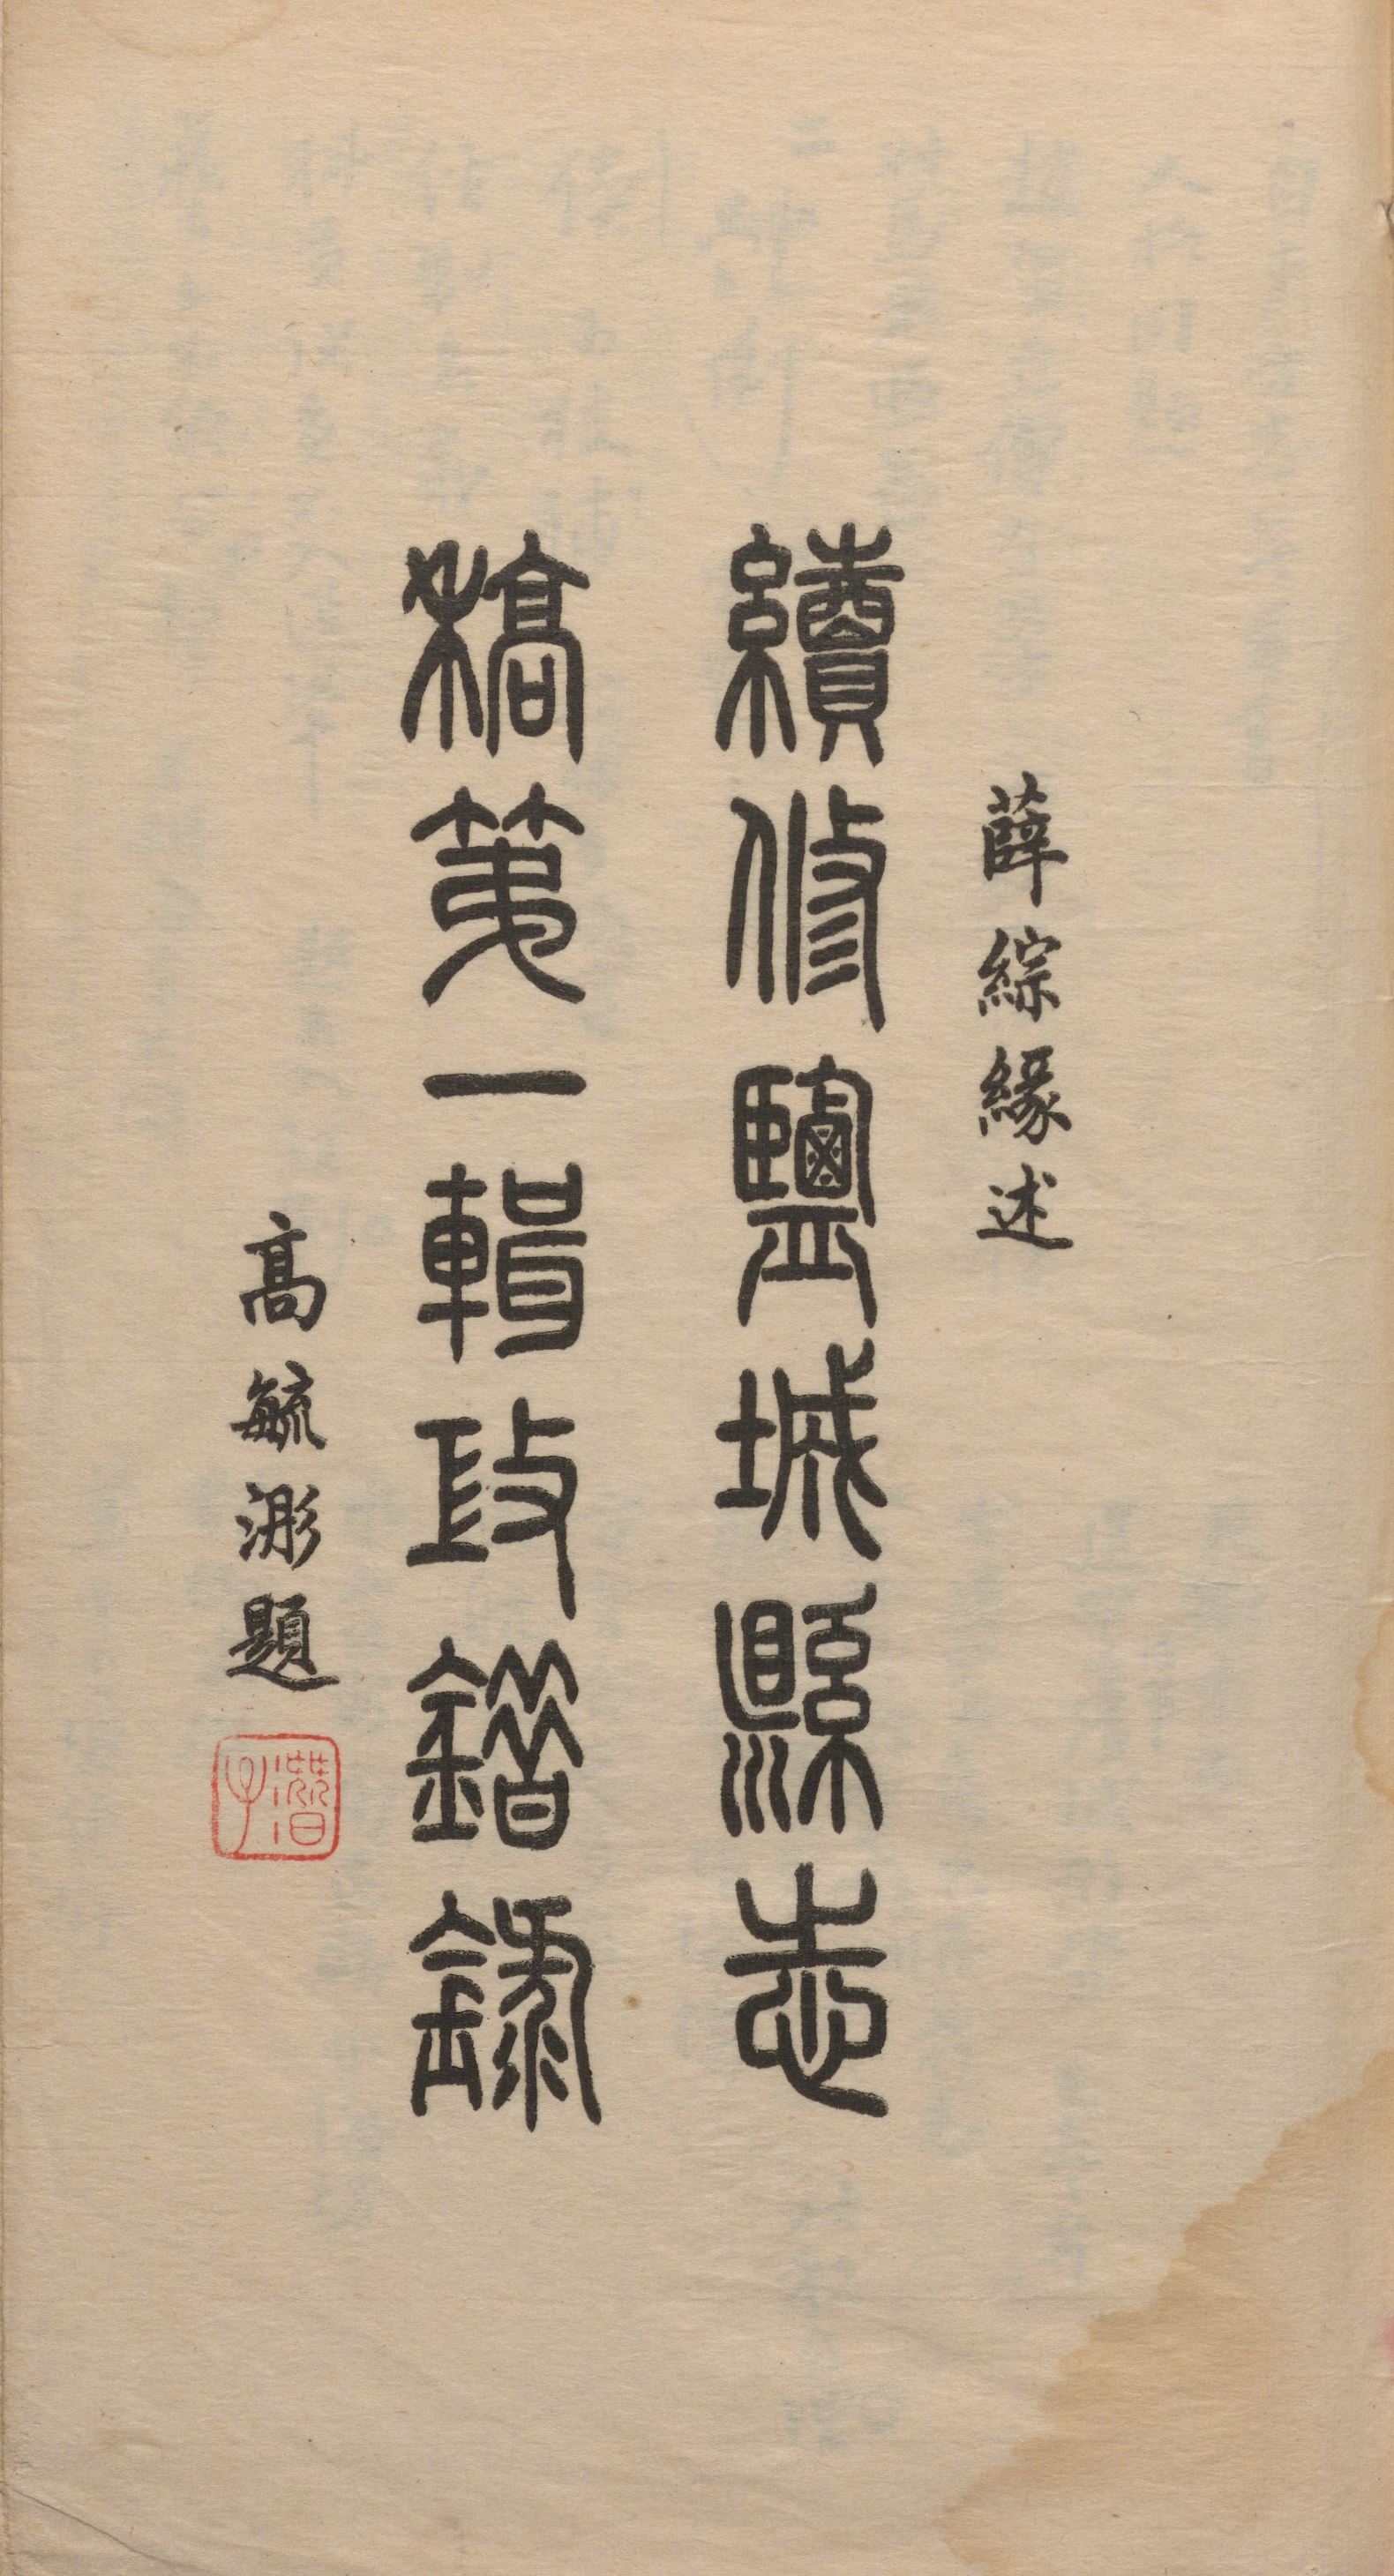 薛綜緣述
續修鹽城縣志
稿第一輯政錯錄
高毓浵題
潛子